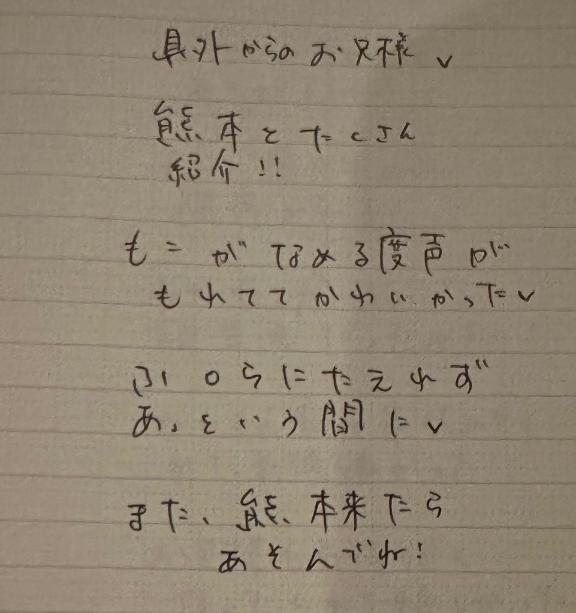 県外からのお兄様 v
熊本をたくさん
紹介!!
もこがなめる度声が
もれててかわいかった v
ふ○らにたえれず
あっという間に v
また、熊本来たら
あそんでね!